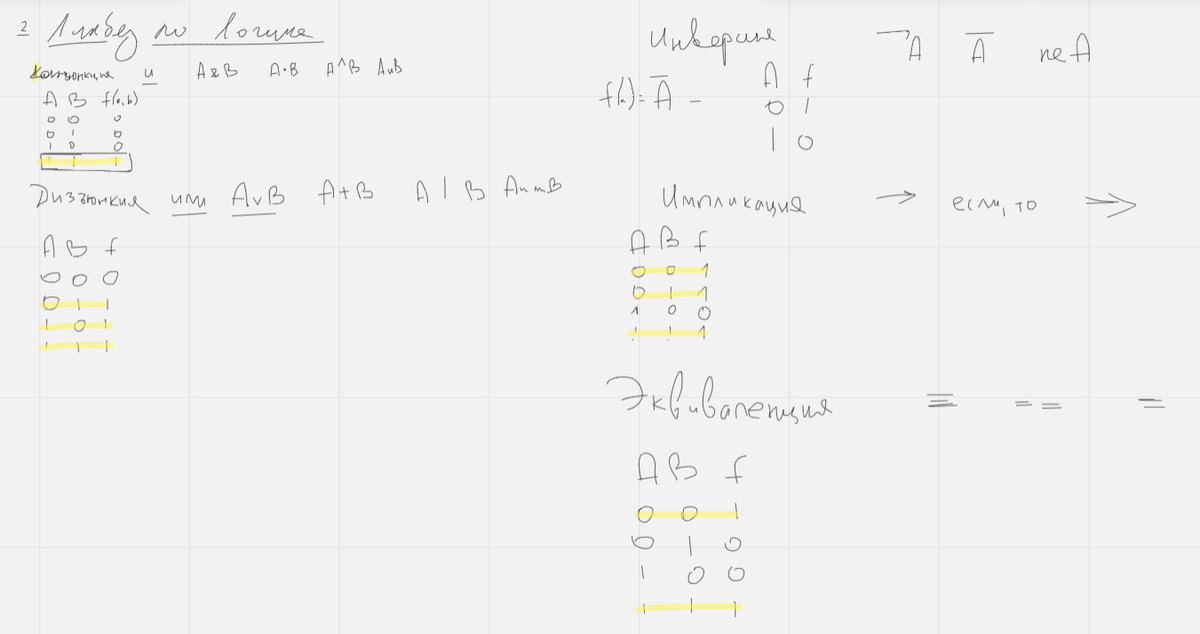 2 Ликбез по логике
Конъюнкция и A&B A·B A^B AиB
A B f(a,b)
0 0 0
0 1 0
1 0 0
1 1 1
Дизъюнкция или AvB A+B A|B AилиB
A B f
0 0 0
0 1 1
1 0 1
1 1 1
Инверсия ¬A A̅ не A
f(.)= A̅ -
A f
0 1
1 0
Импликация → если, то ⇒
A B f
0 0 1
0 1 1
1 0 0
1 1 1
Эквиваленция ≡ == =
A B f
0 0 1
0 1 0
1 0 0
1 1 1